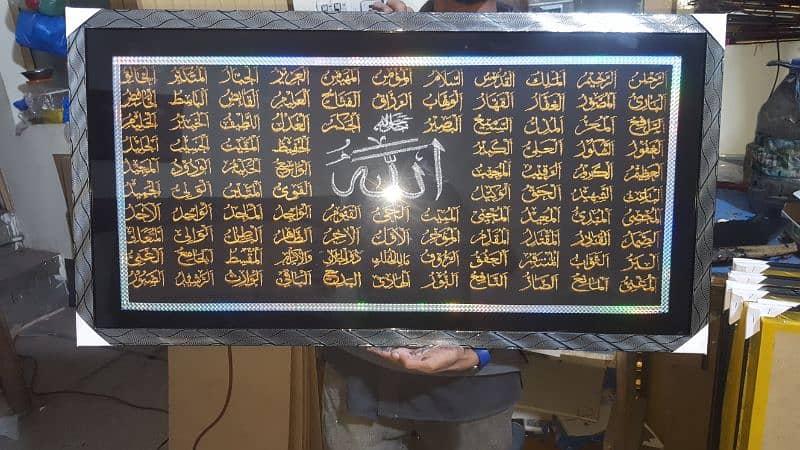 الرحمن الرحيم الملك القدوس السلام المؤمن المهيمن العزيز الجبار المتكبر الخالق
البارئ المصور الغفار القهار الوهاب الرزاق الفتاح العليم القابض الباسط الخافض
الرافع المعز المذل السميع البصير جل جلاله الحكم العدل اللطيف الخبير الحليم
الغفور الشكور العلي الكبير الله الحفيظ المقيت الحسيب الجليل
العظيم الكريم الرقيب المجيب الواسع الحكيم الودود المجيد
الباعث الشهيد الحق الوكيل القوي المتين الولي الحميد
المحصي المبدئ المعيد المحيي المميت الحي القيوم الواجد الماجد الواحد الاحد
الصمد القادر المقتدر المقدم المؤخر الأول الآخر الظاهر الباطن الوالي المتعالي
البر التواب المنتقم العفو الرؤوف مالك الملك ذو الجلال والإكرام المقسط الجامع الغني
المغني المانع الضار النافع النور الهادي البديع الباقي الوارث الرشيد الصبور